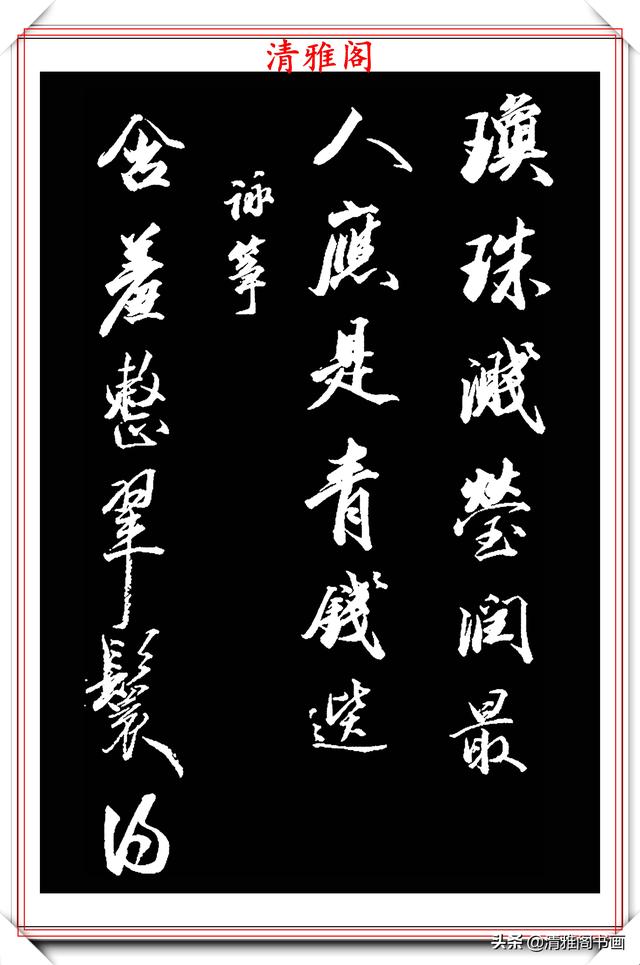 清雅阁
珠濺瑩潤最
人應是青錢選
詠箏
含羞整翠鬟得
头条 @清雅阁书画